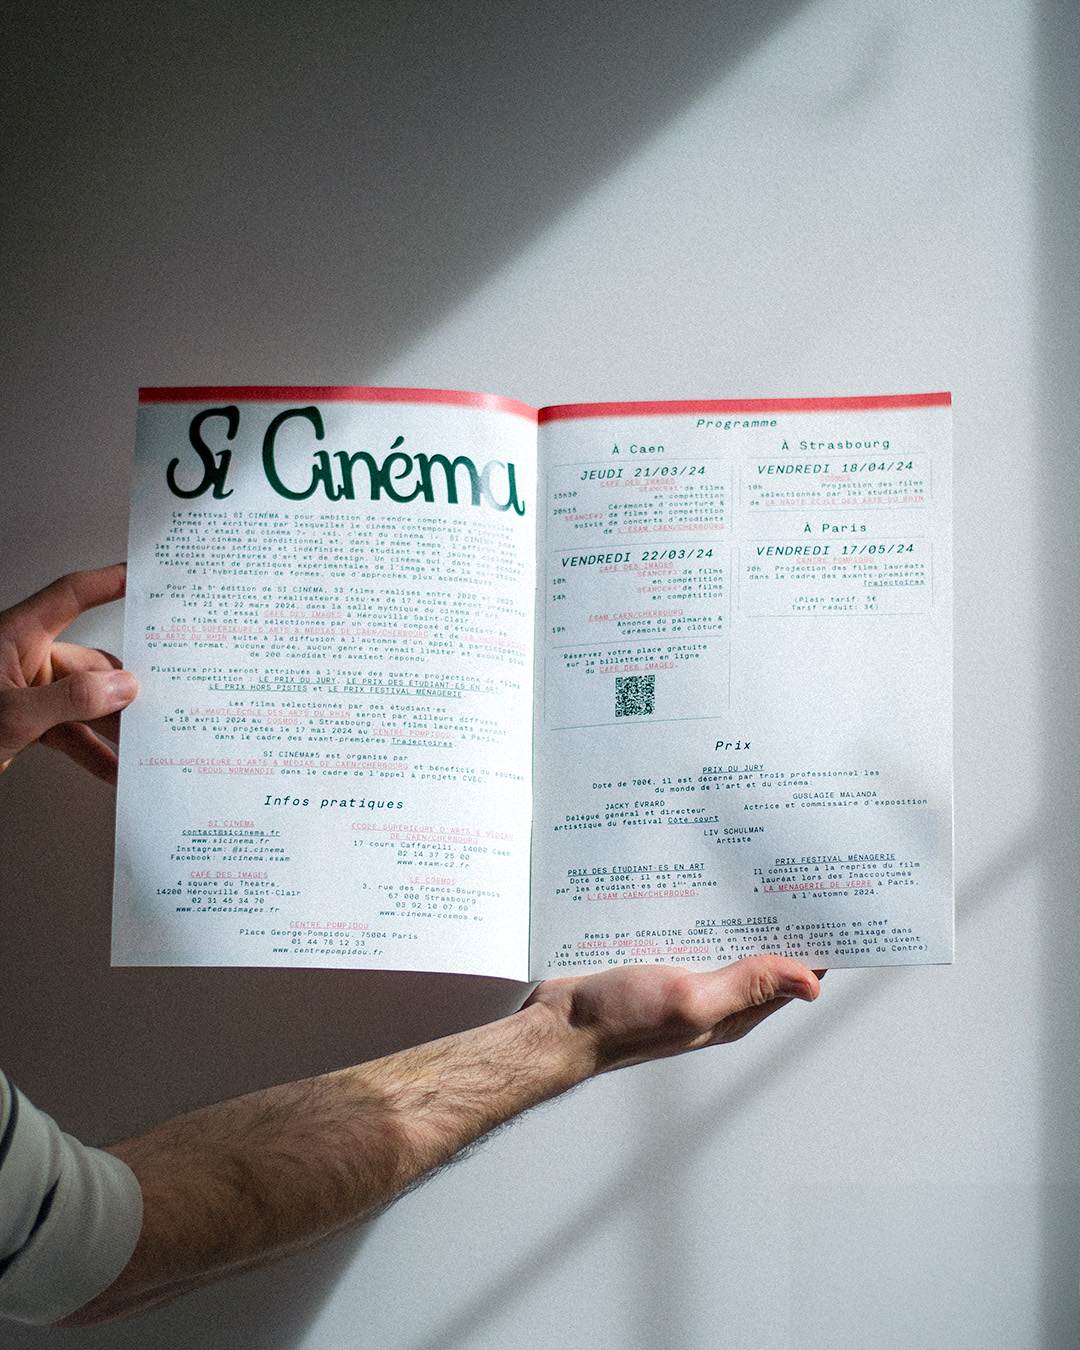 Si Cinéma
Le festival SI CINÉMA a pour ambition de rendre compte des nouvelles
formes et écritures par lesquelles le cinéma contemporain s'invente.
«Et si c'était du cinéma ?» «si, c'est du cinéma !». SI CINÉMA pose
ainsi le cinéma au conditionnel et, dans le même temps, l'affirme avec
les ressources infinies et indéfinies des étudiant·es et jeunes diplômé·es
des écoles supérieures d'art et de design. Un cinéma qui, dans ces écoles,
relève autant de pratiques expérimentales de l'image et de la narration,
de l'hybridation de formes, que d'approches plus académiques.
Pour la 5e édition de SI CINÉMA, 33 films réalisés entre 2020 et 2023
par des réalisatrices et réalisateurs issu·es de 17 écoles seront présentés
les 21 et 22 mars 2024, dans la salle mythique du cinéma d'art
et d'essai CAFÉ DES IMAGES à Hérouville Saint-Clair.
Ces films ont été sélectionnés par un comité composé d'étudiant·es
de L'ÉCOLE SUPÉRIEURE D'ARTS & MÉDIAS DE CAEN/CHERBOURG et de LA HAUTE ÉCOLE
DES ARTS DU RHIN suite à la diffusion à l'automne d'un appel à participation
qu'aucun format, aucune durée, aucun genre ne venait limiter et auquel plus
de 200 candidat·es avaient répondu.
Plusieurs prix seront attribués à l'issue des quatre projections de films
en compétition : LE PRIX DU JURY, LE PRIX DES ÉTUDIANT·ES EN ART,
LE PRIX HORS PISTES et LE PRIX FESTIVAL MÉNAGERIE.
Les films sélectionnés par des étudiant·es
de LA HAUTE ÉCOLE DES ARTS DU RHIN seront par ailleurs diffusés
le 18 avril 2024 au COSMOS, à Strasbourg. Les films lauréats seront
quant à eux projetés le 17 mai 2024 au CENTRE POMPIDOU, à Paris,
dans le cadre des avant-premières Trajectoires.
SI CINÉMA#5 est organisé par
L'ÉCOLE SUPÉRIEURE D'ARTS & MÉDIAS DE CAEN/CHERBOURG et bénéficie du soutien
du CROUS NORMANDIE dans le cadre de l'appel à projets CVEC.
Infos pratiques
SI CINÉMA
contact@sicinema.fr
www.sicinema.fr
Instagram: @si.cinema
Facebook: sicinema.esam
CAFÉ DES IMAGES
4 square du Théâtre,
14200 Hérouville Saint-Clair
02 31 45 34 70
www.cafedesimages.fr
ÉCOLE SUPÉRIEURE D'ARTS & MÉDIAS
DE CAEN/CHERBOURG
17 cours Caffarelli, 14000 Caen
02 14 37 25 00
www.esam-c2.fr
LE COSMOS
3, rue des Francs-Bourgeois
67000 Strasbourg
03 92 10 07 60
www.cinema-cosmos.eu
CENTRE POMPIDOU
Place George-Pompidou, 75004 Paris
01 44 78 12 33
www.centrepompidou.fr
Programme
À Caen
JEUDI 21/03/24
CAFÉ DES IMAGES
15h30 SÉANCE#1 de films
en compétition
20h15 Cérémonie d'ouverture &
SÉANCE#2 de films en compétition
suivis de concerts d'étudiants
de L'ÉSAM CAEN/CHERBOURG
VENDREDI 22/03/24
CAFÉ DES IMAGES
10h SÉANCE#3 de films
en compétition
14h SÉANCE#4 de films
en compétition
ÉSAM CAEN/CHERBOURG
19h Annonce du palmarès &
cérémonie de clôture
Réservez votre place gratuite
sur la billetterie en ligne
du CAFÉ DES IMAGES.
À Strasbourg
VENDREDI 18/04/24
COSMOS
10h Projection des films
sélectionnés par les étudiant·es
de LA HAUTE ÉCOLE DES ARTS DU RHIN
À Paris
VENDREDI 17/05/24
CENTRE POMPIDOU
20h Projection des films lauréats
dans le cadre des avants-premières
Trajectoires
(Plein tarif: 5€
Tarif réduit: 3€)
Prix
PRIX DU JURY
Doté de 700€, il est décerné par trois professionnel·les
du monde de l'art et du cinéma:
JACKY ÉVRARD
Délégué général et directeur
artistique du festival Côté court
GUSLAGIE MALANDA
Actrice et commissaire d'exposition
LIV SCHULMAN
Artiste
PRIX DES ÉTUDIANT·ES EN ART
Doté de 300€, il est remis
par les étudiant·es de 1ère année
de L'ÉSAM CAEN/CHERBOURG.
PRIX FESTIVAL MÉNAGERIE
Il consiste à la reprise du film
lauréat lors des Inaccoutumés
à LA MÉNAGERIE DE VERRE à Paris,
à l'automne 2024.
PRIX HORS PISTES
Remis par GÉRALDINE GOMEZ, commissaire d'exposition en chef
au CENTRE POMPIDOU, il consiste en trois à cinq jours de mixage dans
les studios du CENTRE POMPIDOU (à fixer dans les trois mois qui suivent
l'obtention du prix, en fonction des disponibilités des équipes du Centre)